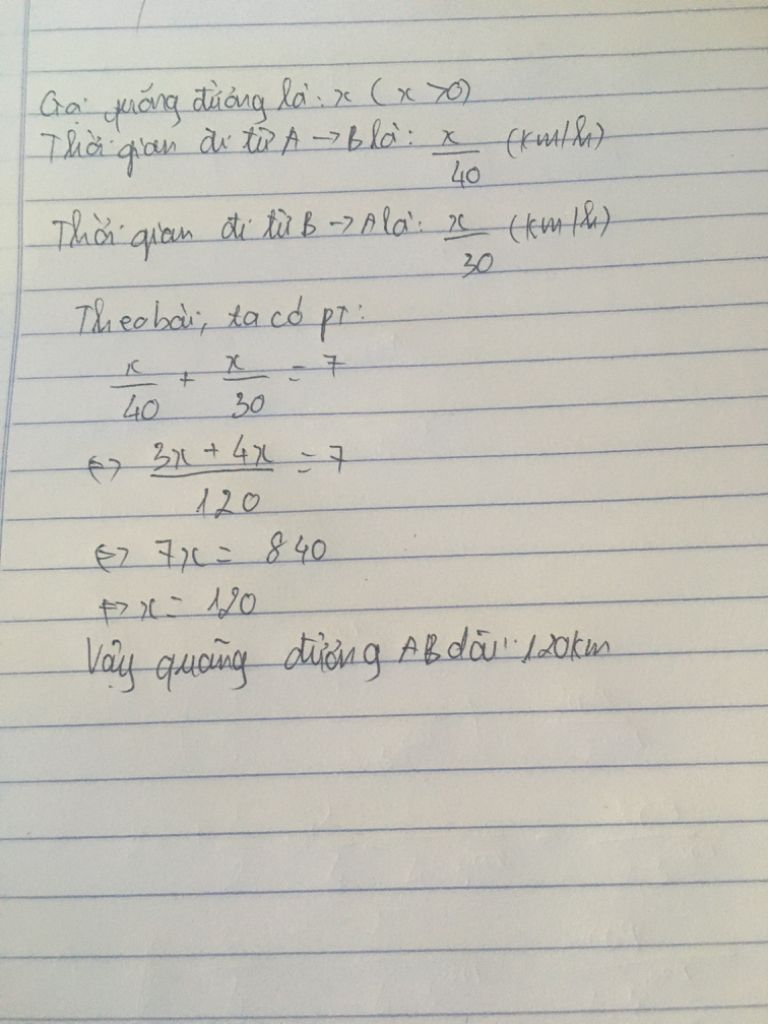 Gọi quãng đường là: x ( x > 0)
Thời gian đi từ A → B là: x/40 (km/h)
Thời gian đi từ B → A là: x/30 (km/h)
Theo bài, ta có pT:
x/40 + x/30 = 7
⇔ (3x + 4x)/120 = 7
⇔ 7x = 840
⇔ x = 120
Vậy quãng đường AB dài: 120km